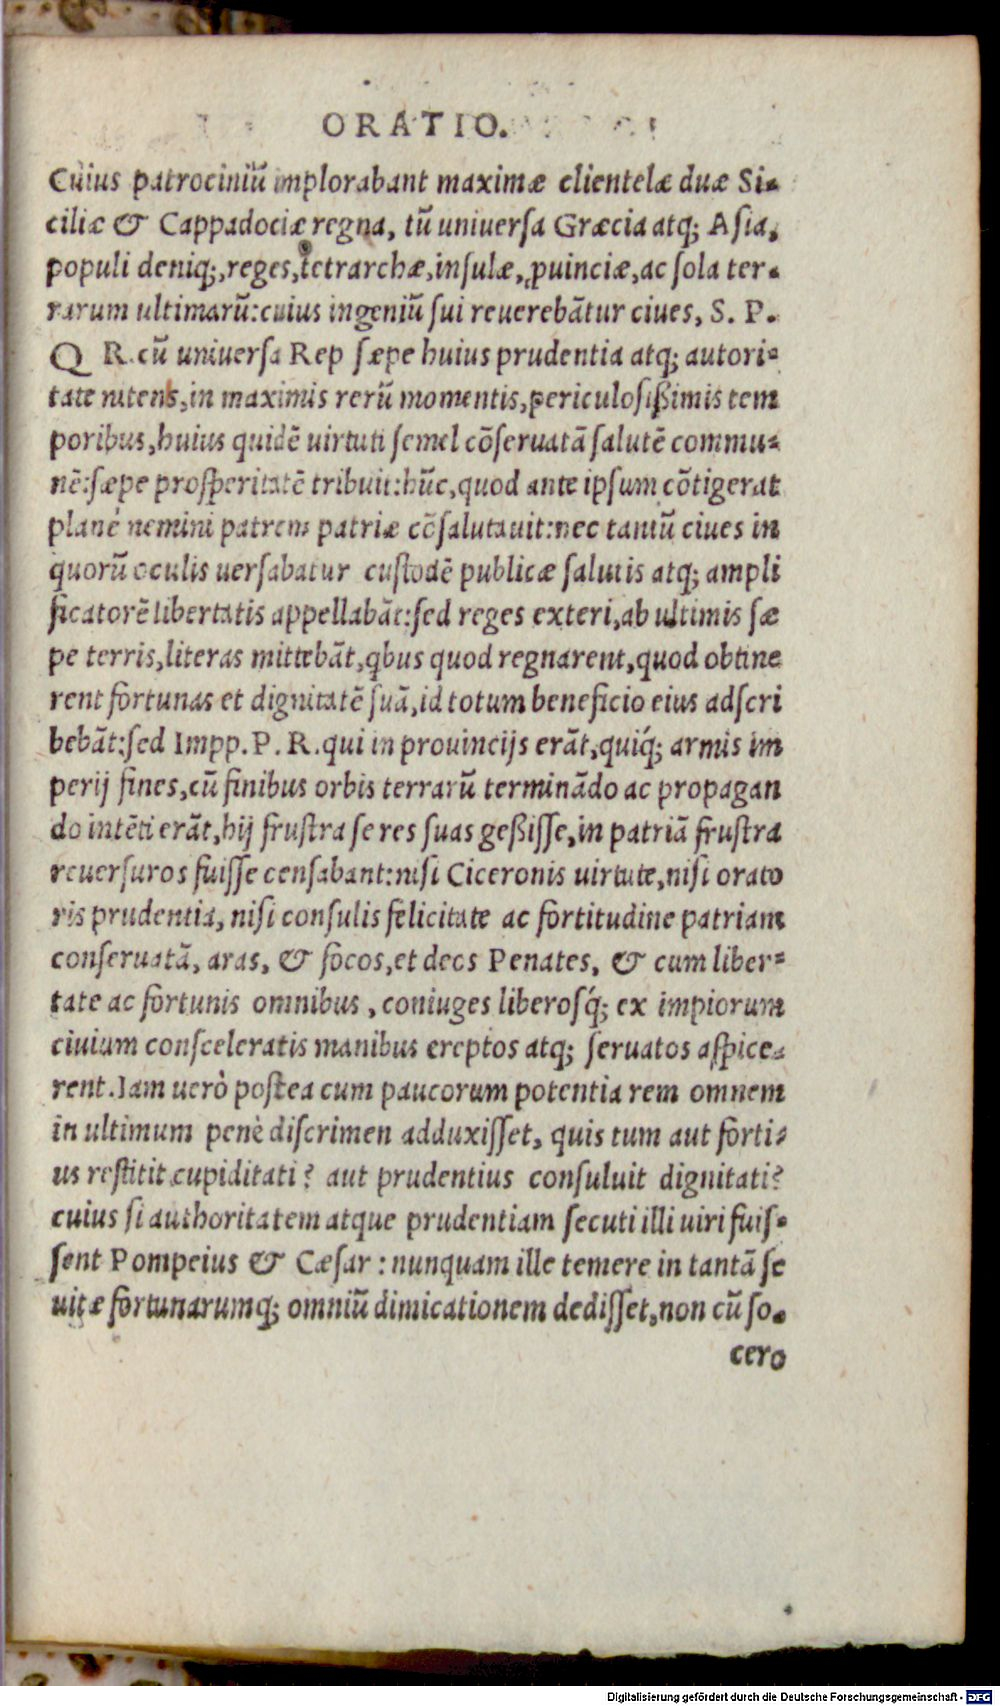 ORATIO.
Cuius patrociniũ implorabant maximæ clientelæ duæ Si-
ciliæ & Cappadociæ regna, tũ uniuersa Græcia atq; Asia,
populi deniq;, reges, tetrarchæ, insulæ, ꝓuinciæ, ac sola ter-
rarum ultimarũ: cuius ingeniũ sui reuerebãtur ciues, S. P.
Q R. cũ uniuersa Rep sæpe huius prudentia atq; autori-
tate nitens, in maximis rerũ momentis, periculosißimis tem
poribus, huius quidẽ uirtuti semel cõseruatã salutẽ commu-
nẽ: sæpe prosperitatẽ tribuit: hũc, quod ante ipsum cõtigerat
planè nemini patrem patriæ cõsalutauit: nec tantũ ciues in
quorũ oculis uersabatur custodẽ publicæ salutis atq; ampli
ficatorẽ libertatis appellabãt: sed reges exteri, ab ultimis sæ
pe terris, literas mittebãt, qbus quod regnarent, quod obtine
rent fortunas et dignitatẽ suã, id totum beneficio eius adscri
bebãt: sed Impp. P. R. qui in prouincijs erãt, quiq́; armis im
perij fines, cũ finibus orbis terrarũ terminãdo ac propagan
do intẽti erãt, hij frustra se res suas geßisse, in patriã frustra
reuersuros fuisse censabant: nisi Ciceronis uirtute, nisi orato
ris prudentia, nisi consulis felicitate ac fortitudine patriam
conseruatã, aras, & focos, et deos Penates, & cum liber-
tate ac fortunis omnibus, coniuges liberosq́; ex impiorum
ciuium consceleratis manibus ereptos atq; seruatos aspice-
rent. Iam uerò postea cum paucorum potentia rem omnem
in ultimum penè discrimen adduxisset, quis tum aut forti-
us restitit cupiditati? aut prudentius consuluit dignitati?
cuius si authoritatem atque prudentiam secuti illi uiri fuis-
sent Pompeius & Cæsar: nunquam ille temere in tantã se
uitæ fortunarumq; omniũ dimicationem dedisset, non cũ so-
cero
Digitalisierung gefördert durch die Deutsche Forschungsgemeinschaft - DFG